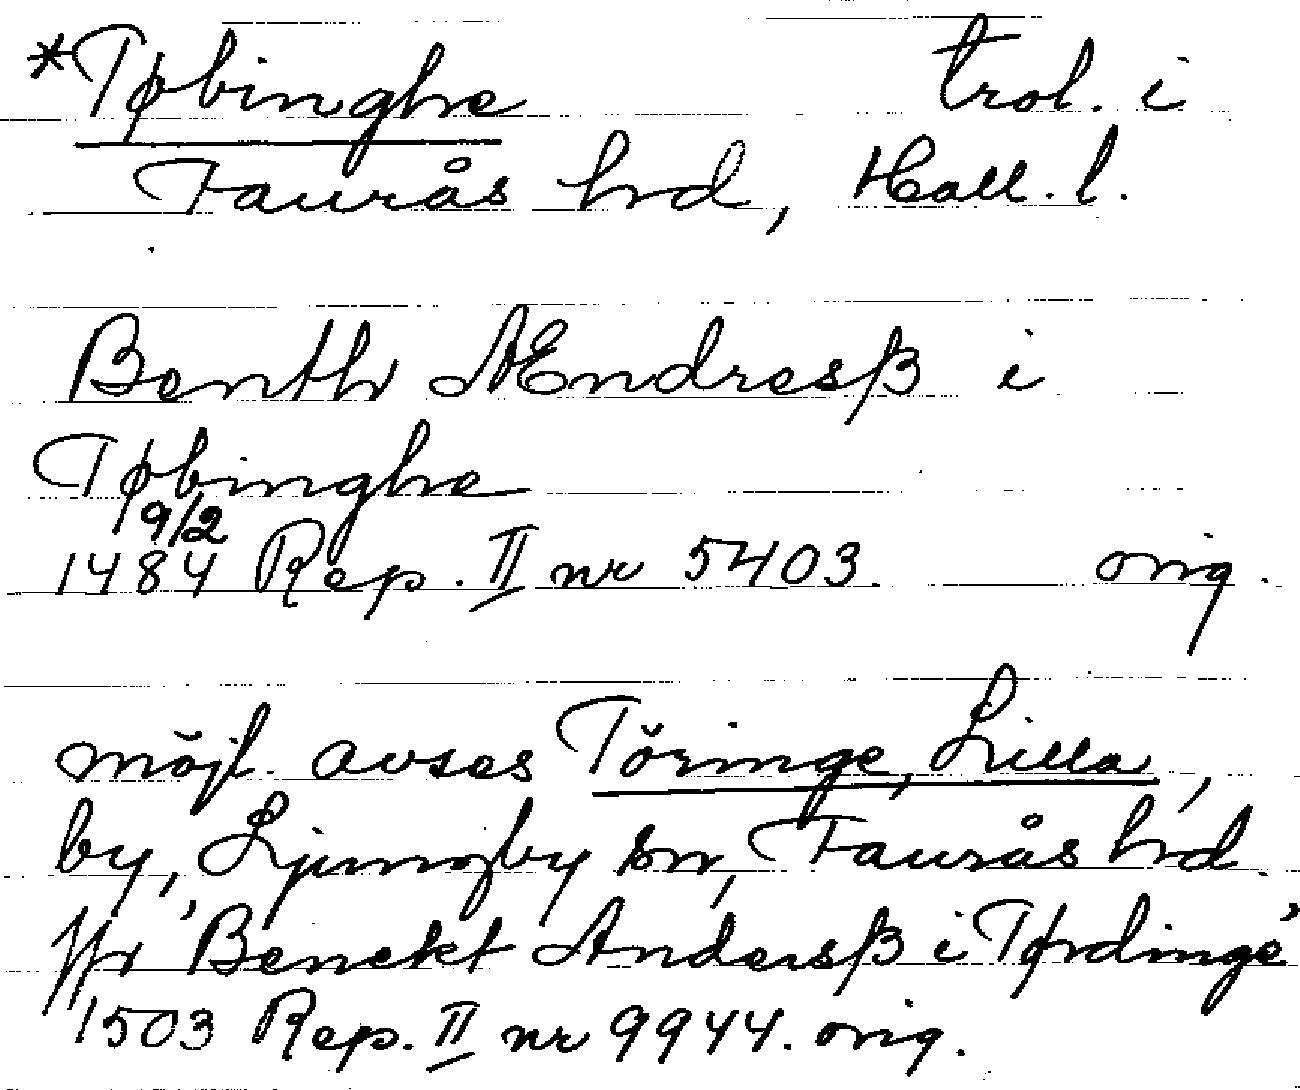 *Tøbinghe trol. i
Faurås hrd, Hall. l.
Benth Ændresß i
Tøbinghe
9/2
1484 Rep. II nr 5403 orig.
möjl. avses Töringe, Lilla,
by, Ljungby sn, Faurås hrd.
Jfr 'Benekt Andersß i Tørdinge'
1503 Rep. II nr 9944. orig.